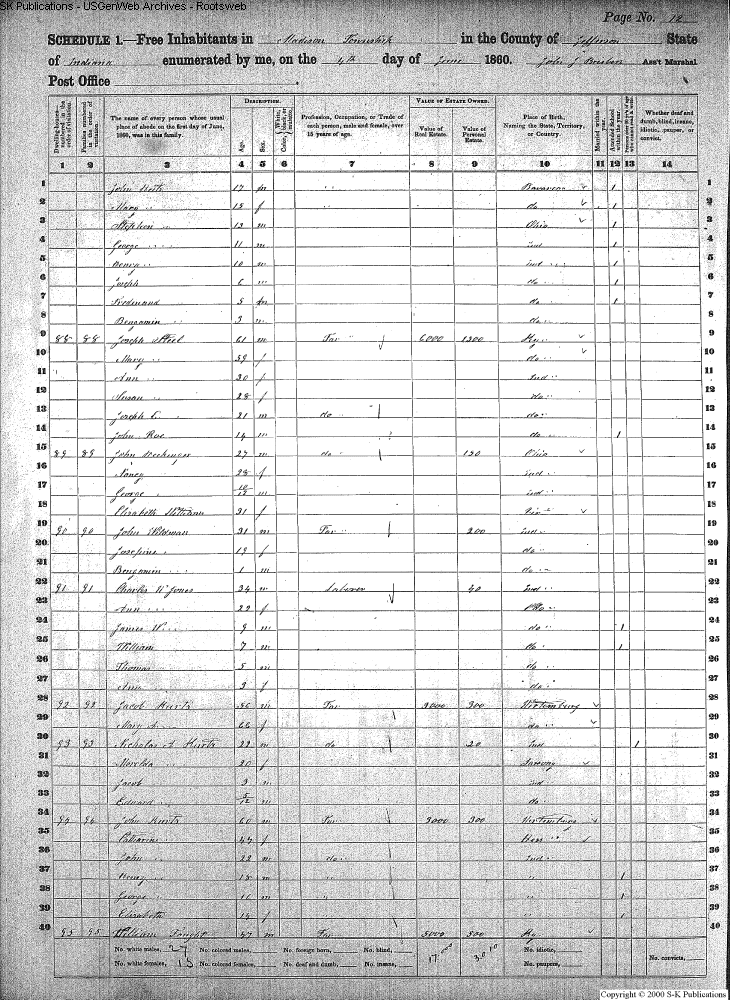 SK Publications - USGenWeb Archives - Rootsweb
Page No. 12
SCHEDULE 1.—Free Inhabitants in Madison Township in the County of Jefferson State
of Indiana enumerated by me, on the 4th day of June 1860. John J Ass't Marshal
Post Office
Dwelling-houses numbered in the order of visitation.
Families numbered in the order of visitation.
The name of every person whose usual place of abode on the first day of June, 1860, was in this family.
DESCRIPTION.
Age.
Sex.
Color, White, black, or mulatto.
Profession, Occupation, or Trade of each person, male and female, over 15 years of age.
VALUE OF ESTATE OWNED.
Value of Real Estate.
Value of Personal Estate.
Place of Birth, Naming the State, Territory, or Country.
Married within the year.
Attended School within the year.
Whether deaf and dumb, blind, insane, idiotic, pauper, or convict.
1 2 3 4 5 6 7 8 9 10 11 12 13 14
1 John 17 m 1 1
2 Mary 15 f do 1 2
3 Stephen 13 m Ohio 1 3
4 George 11 m Ind 1 4
5 Henry 10 m Ind 1 5
6 Joseph 6 m do 1 6
7 Ferdinand 5 m do 1 7
8 Benjamin 3 m do 8
9 88 88 Joseph Steel 61 m Far 6000 1300 Ky 9
10 Mary 59 f do 10
11 Ann 30 f Ind 11
12 Susan 28 f do 12
13 Joseph C. 21 m do do 13
14 John Roe 14 m do 1 14
15 89 89 John 27 m do 150 Ohio 15
16 Nancy 28 f Ind 16
17 George 10/12 m Ind 17
18 Elizabeth 31 f 18
19 90 90 John Wildman 31 m Far 200 Ind 19
20 Josephine 19 f do 20
21 Benjamin 1 m do 21
22 91 91 Charles W Jones 34 m Laborer 40 Ind 22
23 Ann 29 f 23
24 James W 9 m do 1 24
25 William 7 m do 1 25
26 Thomas 5 m do 26
27 Ann 3 f do 27
28 92 92 Jacob Kurtz m Far 300 Wirtemburg 28
29 Mary A 66 f do 29
30 93 93 Nicholas A Kurtz 22 m do 20 Ind 1 30
31 Martha 20 f 31
32 Jacob 3 m Ind 32
33 Edward 5/12 m do 33
34 94 94 John Kurtz 60 m Far 3000 300 Wirtemburg 34
35 f 35
36 John 22 m do Ind 36
37 Henry m " 1 37
38 George m " 1 38
39 Elizabeth f " 1 39
40 95 95 William 47 m Far 3000 500 Ky 40
No. white males, 27 No. colored males, No. foreign born, No. blind, No. idiotic,
No. white females, 13 No. colored females, No. deaf and dumb, No. insane, No. paupers, No. convicts,
Copyright © 2000 S-K Publications